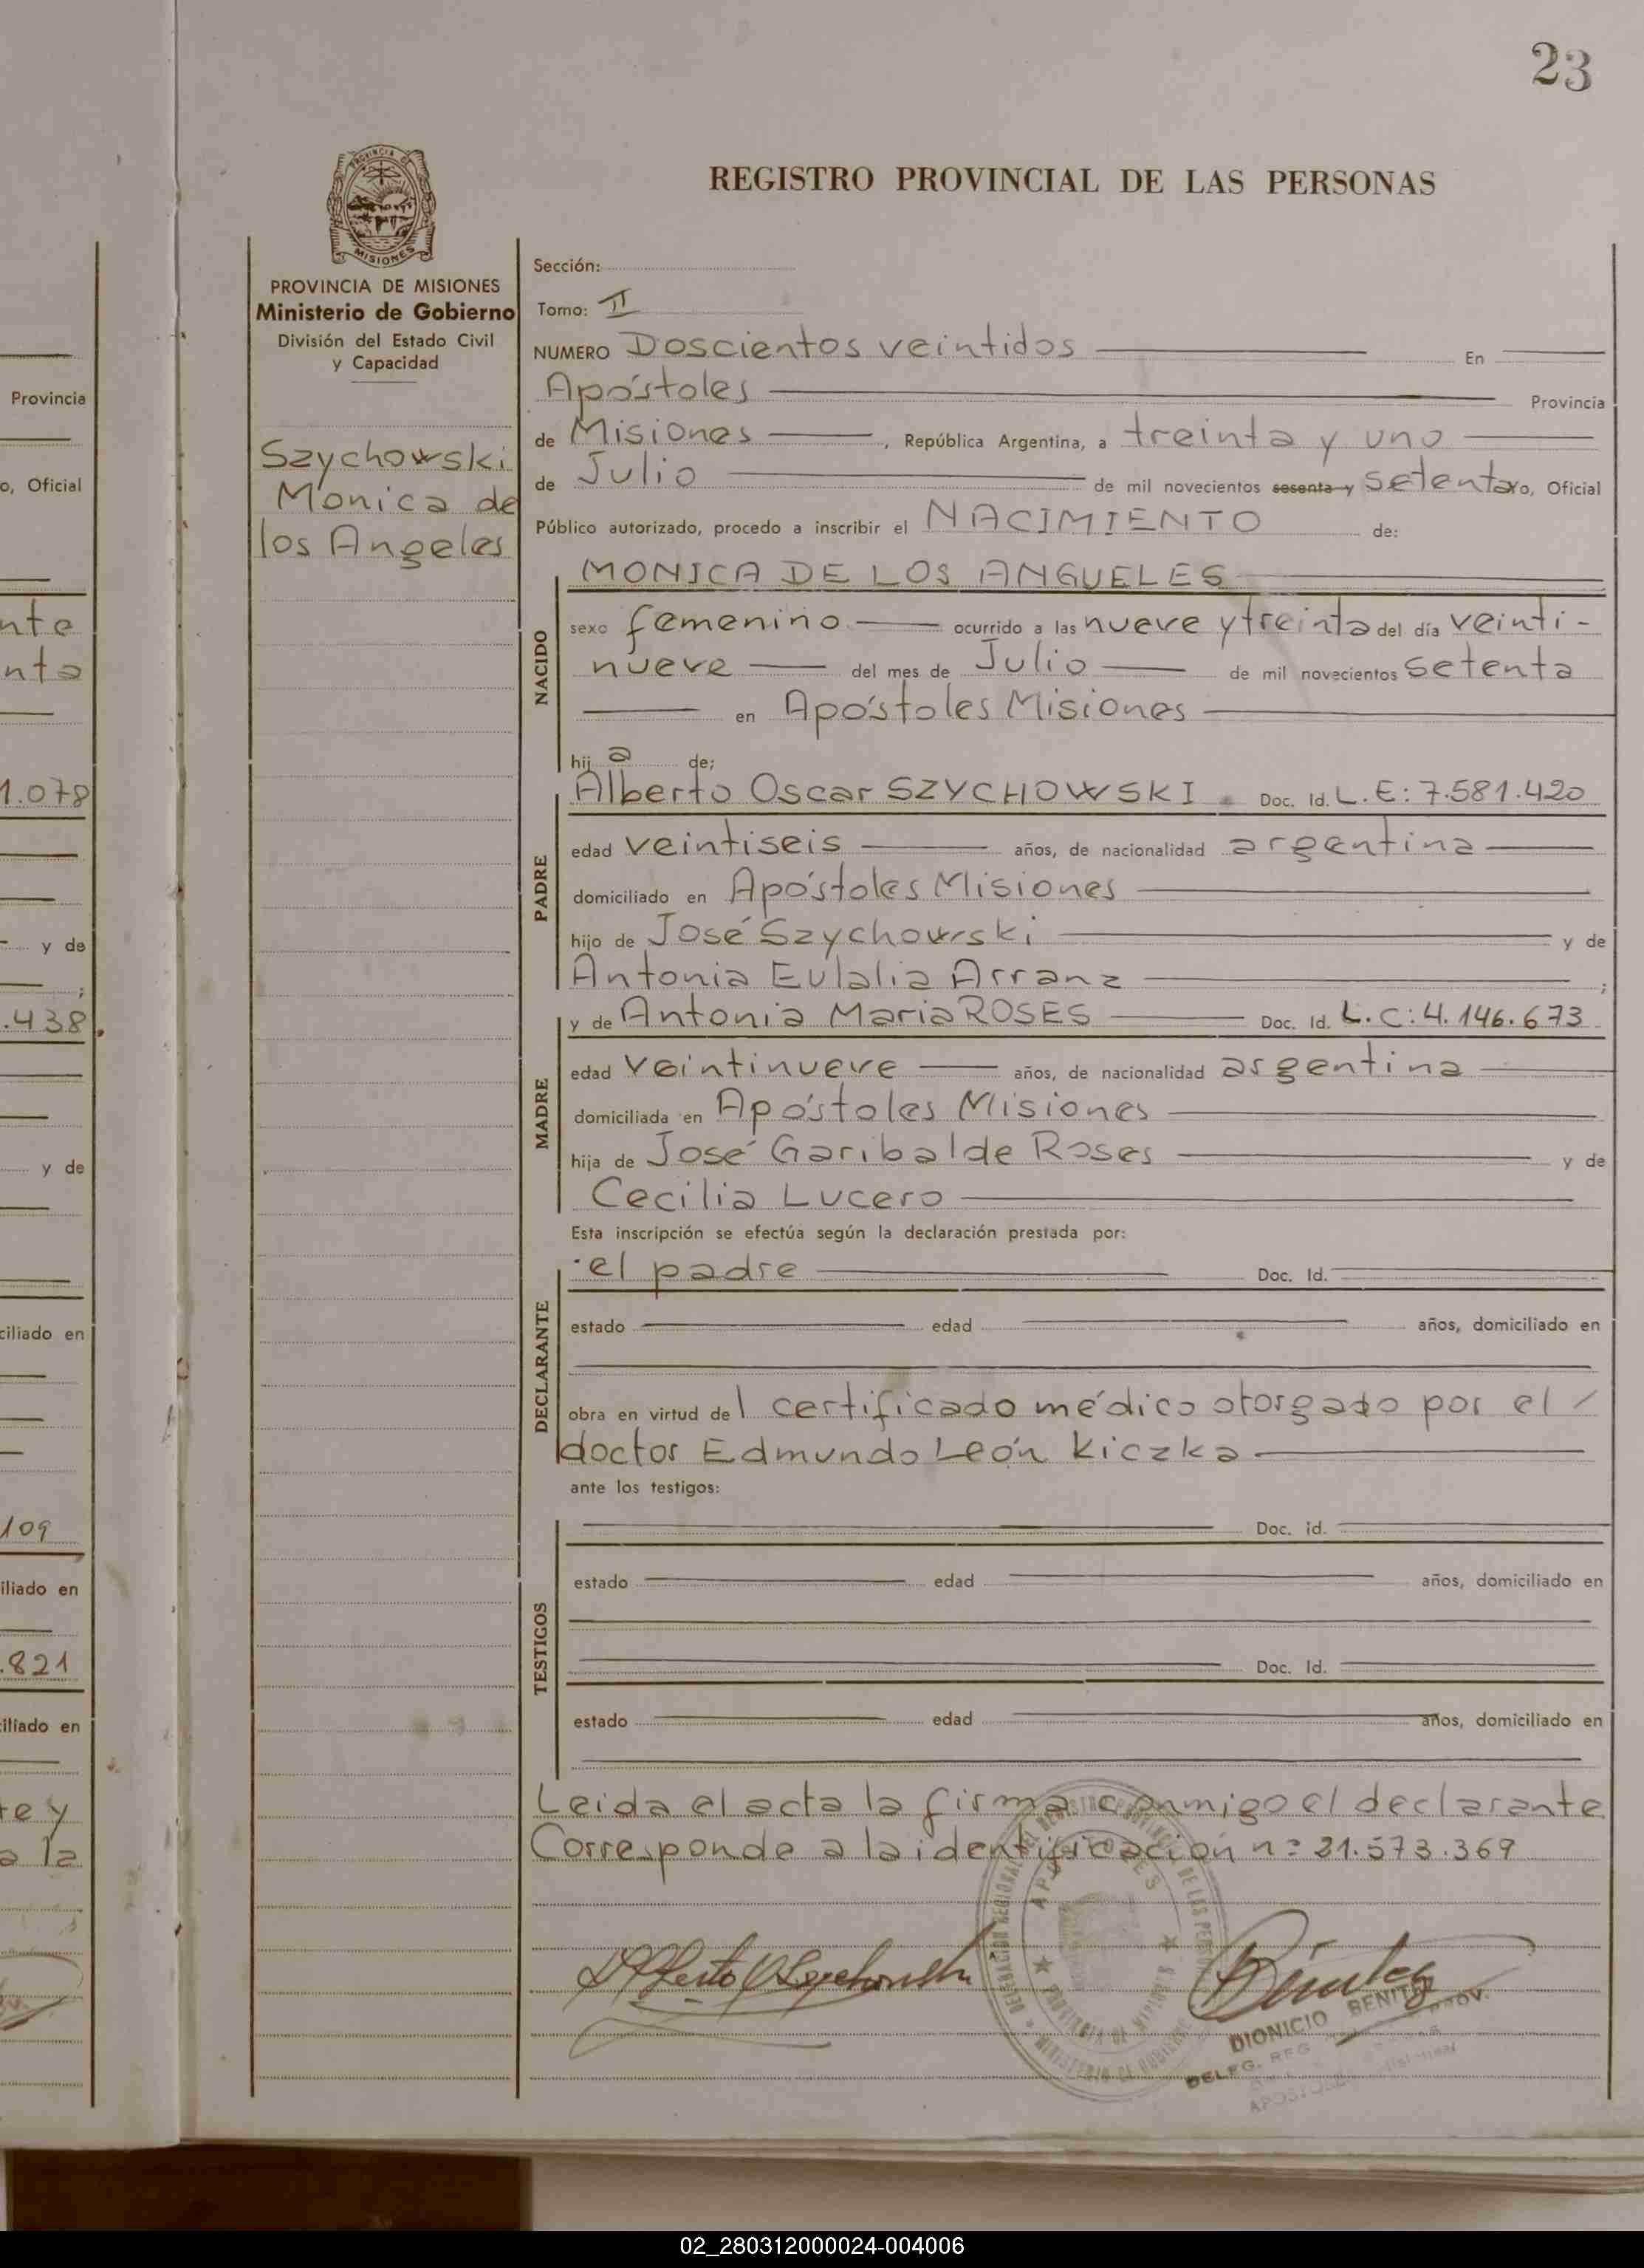 23
REGISTRO PROVINCIAL DE LAS PERSONAS
PROVINCIA DE MISIONES
PROVINCIA DE MISIONES
Ministerio de Gobierno
División del Estado Civil
y Capacidad
Szychowski
Monica de
los Angeles
Sección:
Tomo: II
NUMERO Doscientos veintidos En
Apóstoles Provincia
de Misiones , República Argentina, a treinta y uno
de Julio de mil novecientos sesenta y setenta yo, Oficial
Público autorizado, procedo a inscribir el NACIMIENTO de:
NACIDO
MONICA DE LOS ANGUELES
sexo femenino ocurrido a las nueve y treinta del día veinti-
nueve del mes de Julio de mil novecientos setenta
en Apóstoles Misiones
hij a de;
PADRE
Alberto Oscar SZYCHOWSKI . Doc. Id. L.E: 7.581.420
edad veintiseis años, de nacionalidad argentina
domiciliado en Apóstoles Misiones
hijo de José Szychowski y de
Antonia Eulalia Arranz ;
MADRE
y de Antonia Maria ROSES Doc. Id. L.C: 4.146.673
edad veintinueve años, de nacionalidad argentina
domiciliada en Apóstoles Misiones
hija de José Garibalde Roses y de
Cecilia Lucero
Esta inscripción se efectúa según la declaración prestada por:
DECLARANTE
el padre Doc. Id.
estado edad años, domiciliado en
obra en virtud de l certificado médico otorgado por el /
doctor Edmundo León Kiczka
ante los testigos:
TESTIGOS
Doc. id.
estado edad años, domiciliado en
Doc. Id.
estado edad años, domiciliado en
Leida el acta la firma conmigo el declarante
Corresponde a la identificación n° 21.573.369
DIONICIO BENITEZ
DELEG. REG. PROV.
Provincia
o, Oficial
nte
nta
1.078
y de
;
.438.
y de
ciliado en
109
iliado en
.821
iliado en
te y
a la
02_280312000024-004006